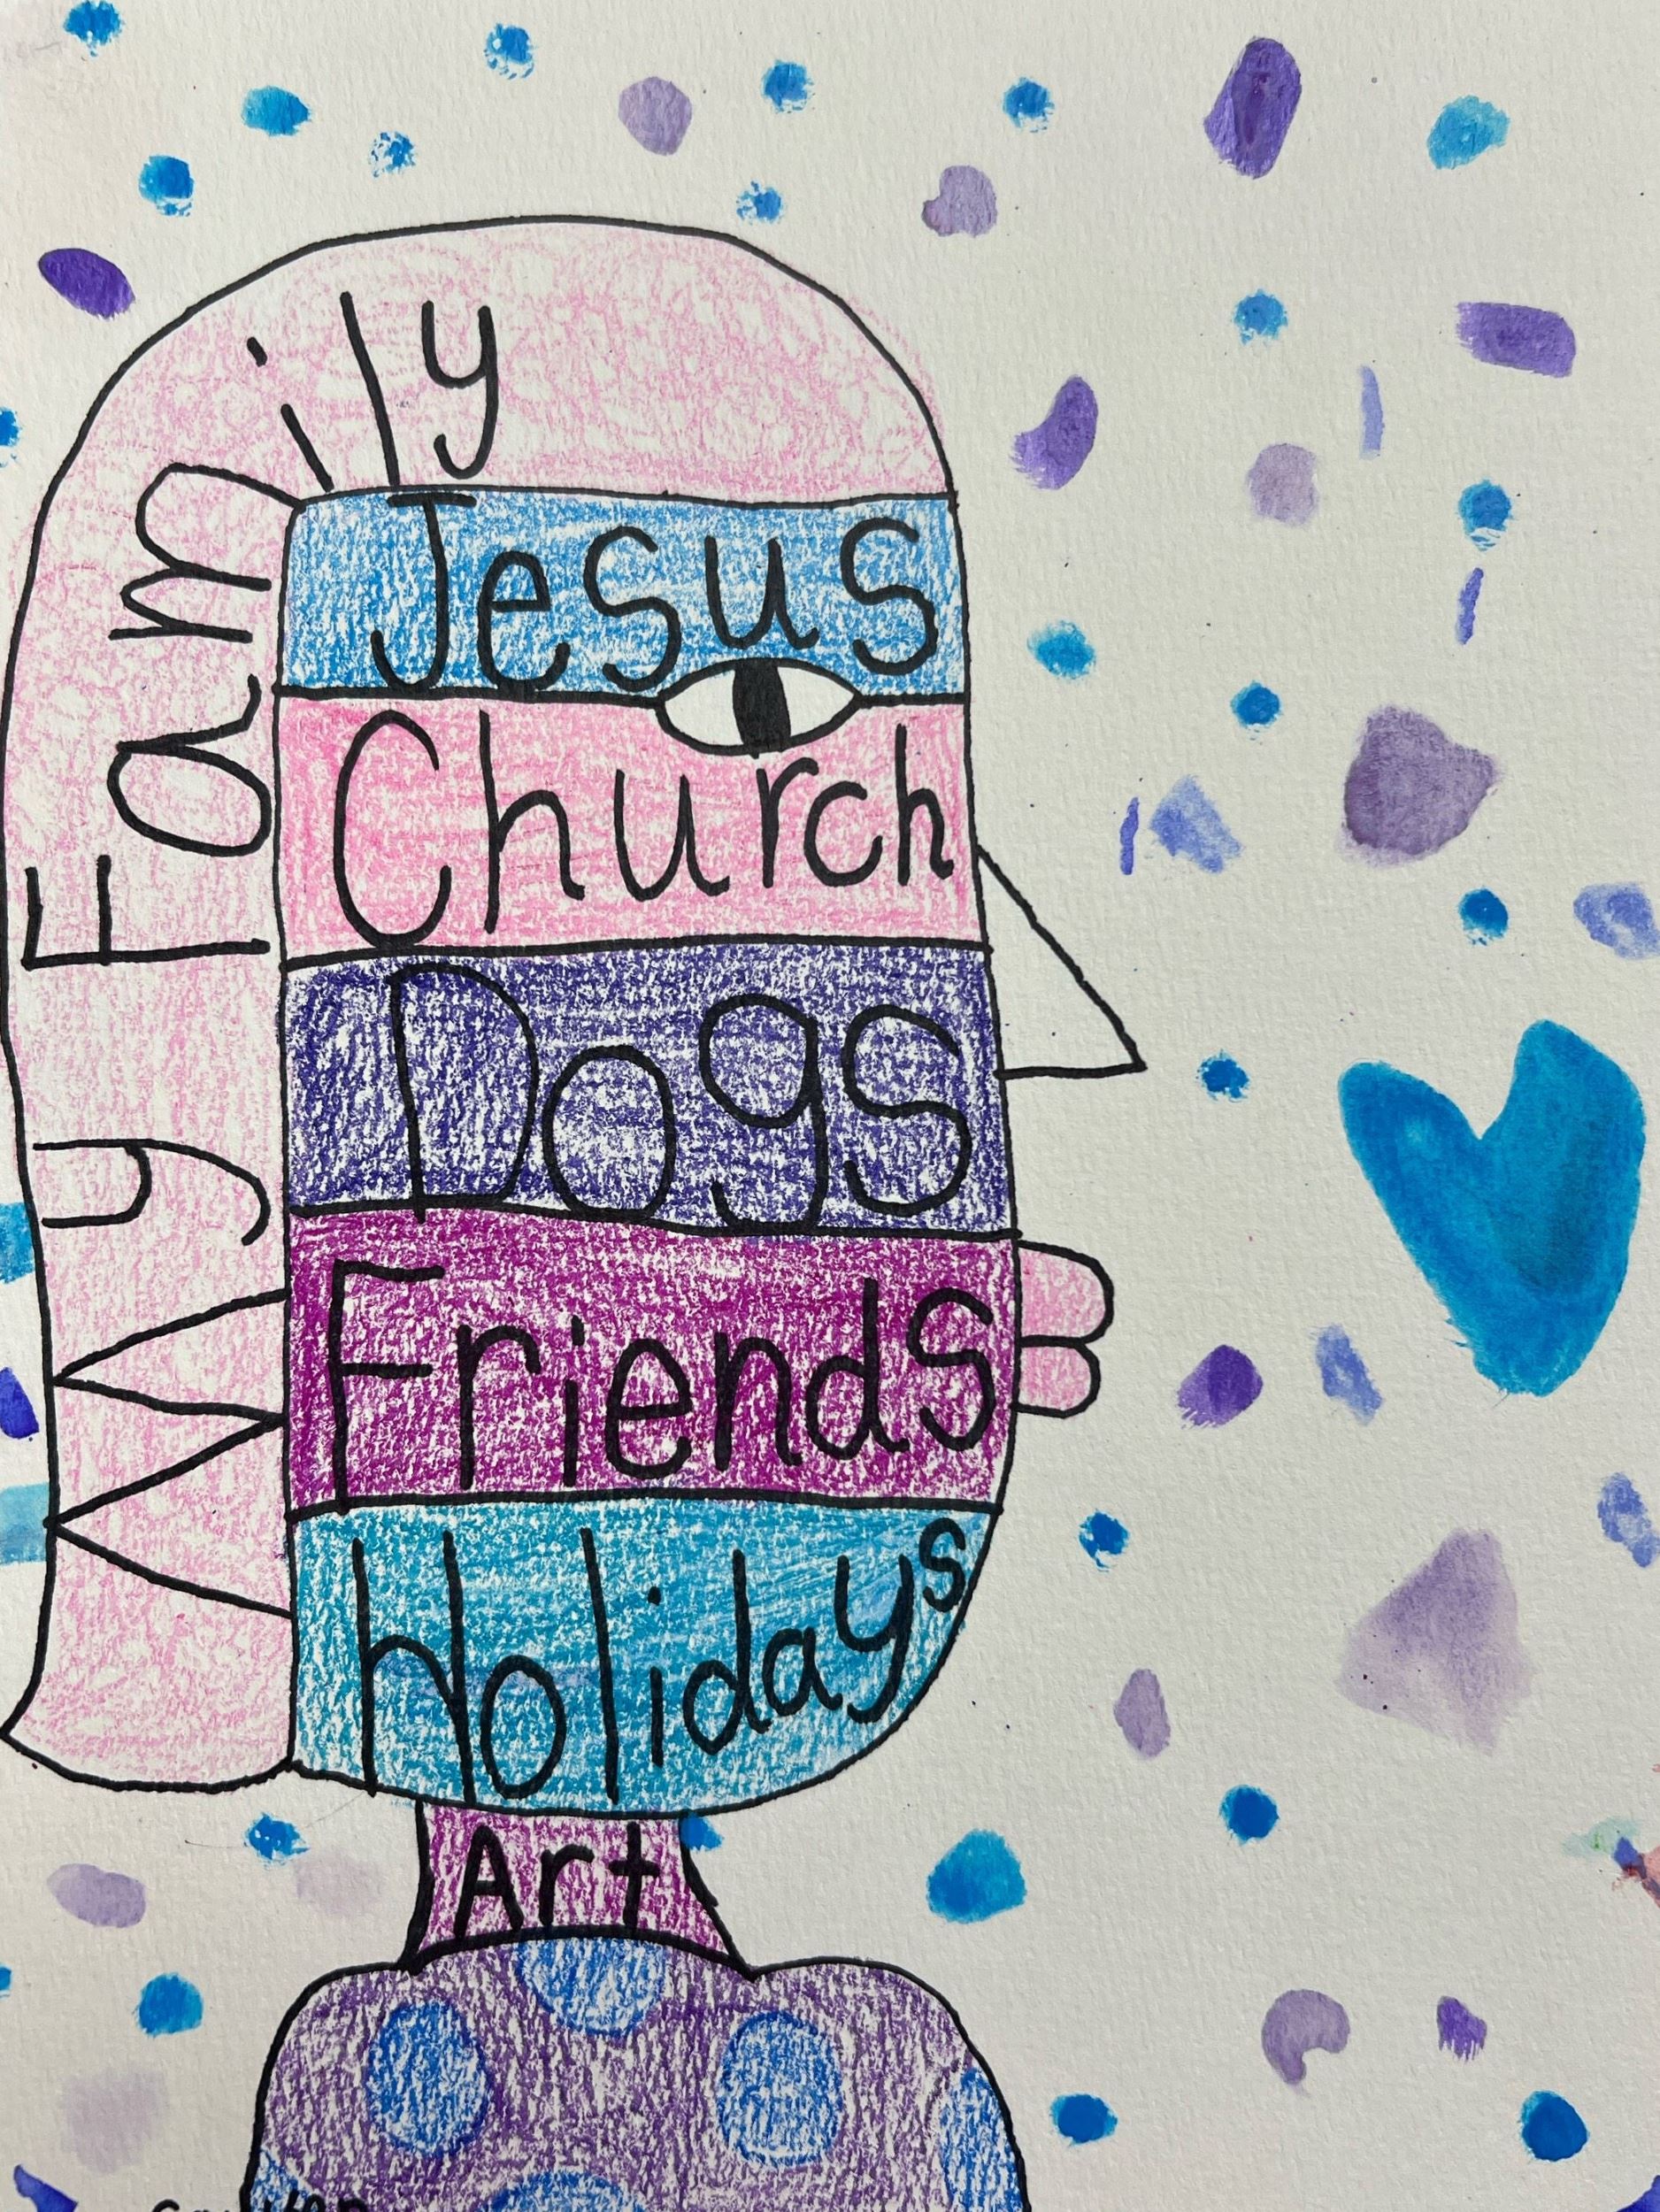 My Family
Jesus
Church
Dogs
Friends
Holidays
Art